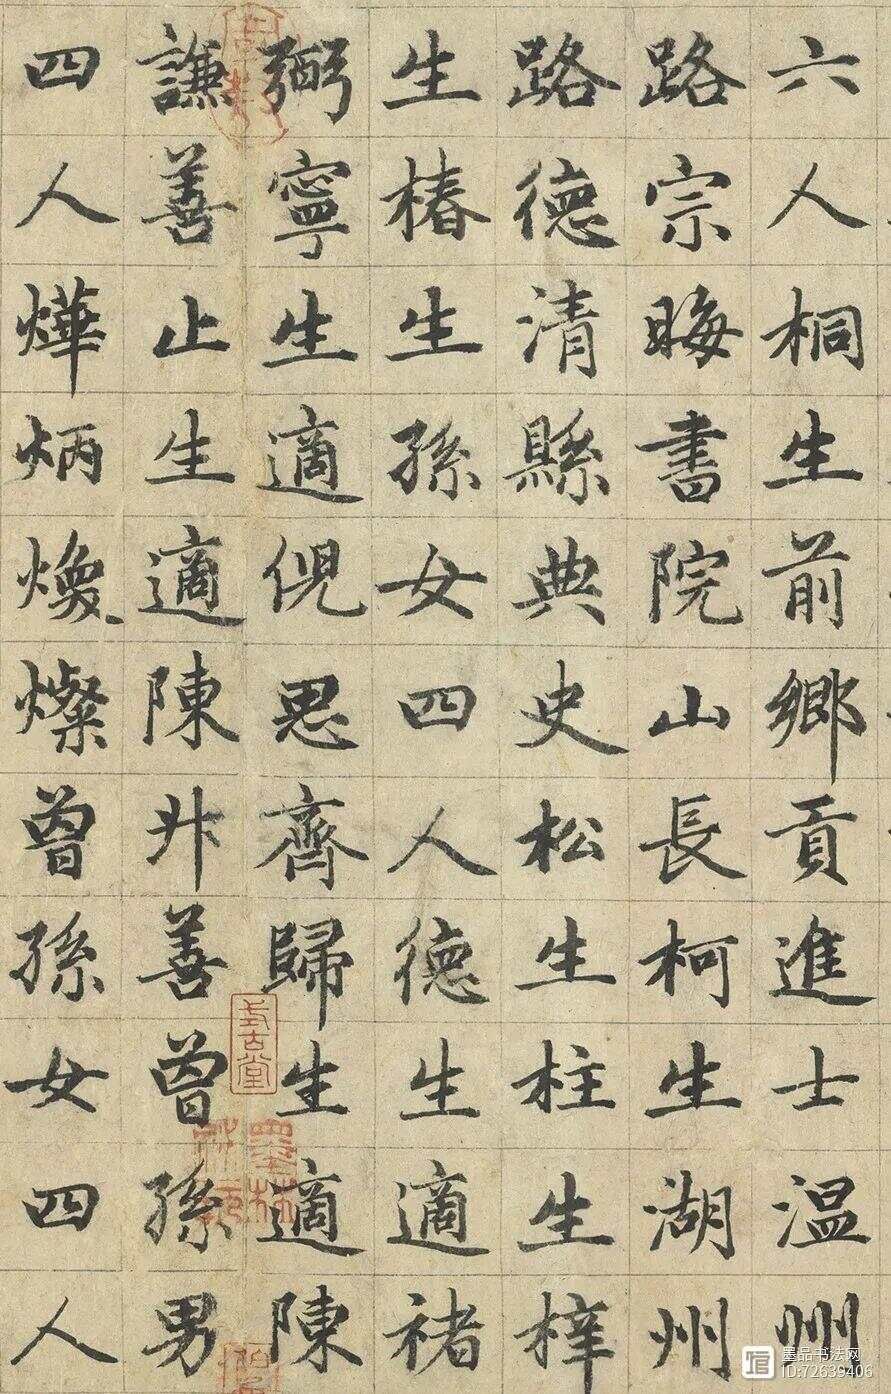 六人桐生前鄉貢進士温州
路宗晦書院山長柯生湖州
路德清縣典史松生柱生梓
生椿生孫女四人德生適褚
弼寧生適倪思齊歸生適陳
謙善止生適陳汁善曾孫男
四人燁炳煥燦曾孫女四人
墨林
墨品书法网
ID:72639406